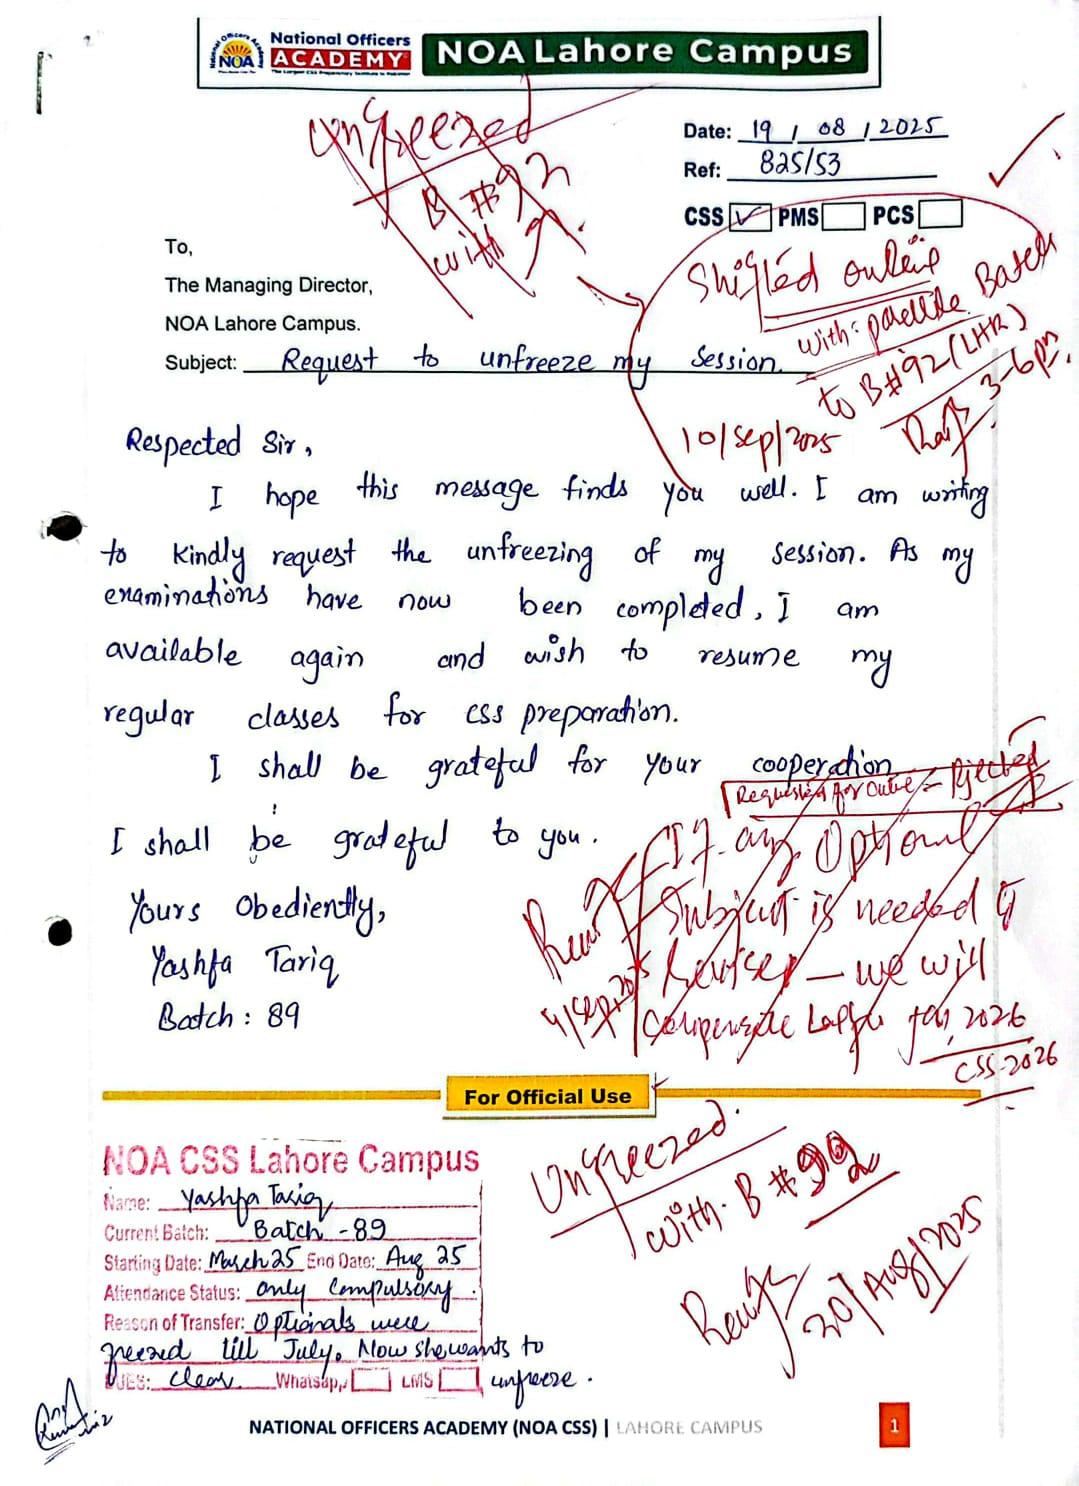 National Officers
ACADEMY
NOA
NOA Lahore Campus
Date: 19 / 08 / 2025
Ref: 825/53
CSS PMS PCS
Ungreezed
B #92
with
Shifted online
with: Batch
to B#92 (LHR)
3-6pm
10/Sep/2025
To,
The Managing Director,
NOA Lahore Campus.
Subject: Request to unfreeze my Session.
Respected Sir,
I hope this message finds you well. I am writing
to kindly request the unfreezing of my session. As my
examinations have now been completed, I am
available again and wish to resume my
regular classes for css preparation.
I shall be grateful for your cooperation
I shall be grateful to you.
Yours Obediently,
Yashfa Tariq
Batch : 89
Requested for – Rejected
If any Optional
Subject is needed
– we will
Jan, 2026
CSS-2026
For Official Use
Ungreezed.
with. B #92
20/Aug/2025
NOA CSS Lahore Campus
Name: Yashfa Tariq
Current Batch: Batch -89
Starting Date: March 25 End Date: Aug 25
Attendance Status: Only Compulsory.
Reason of Transfer: Optionals were
freezed till July. Now she wants to
DUES: clear Whatsapp LMS unfreeze.
NATIONAL OFFICERS ACADEMY (NOA CSS) | LAHORE CAMPUS
1